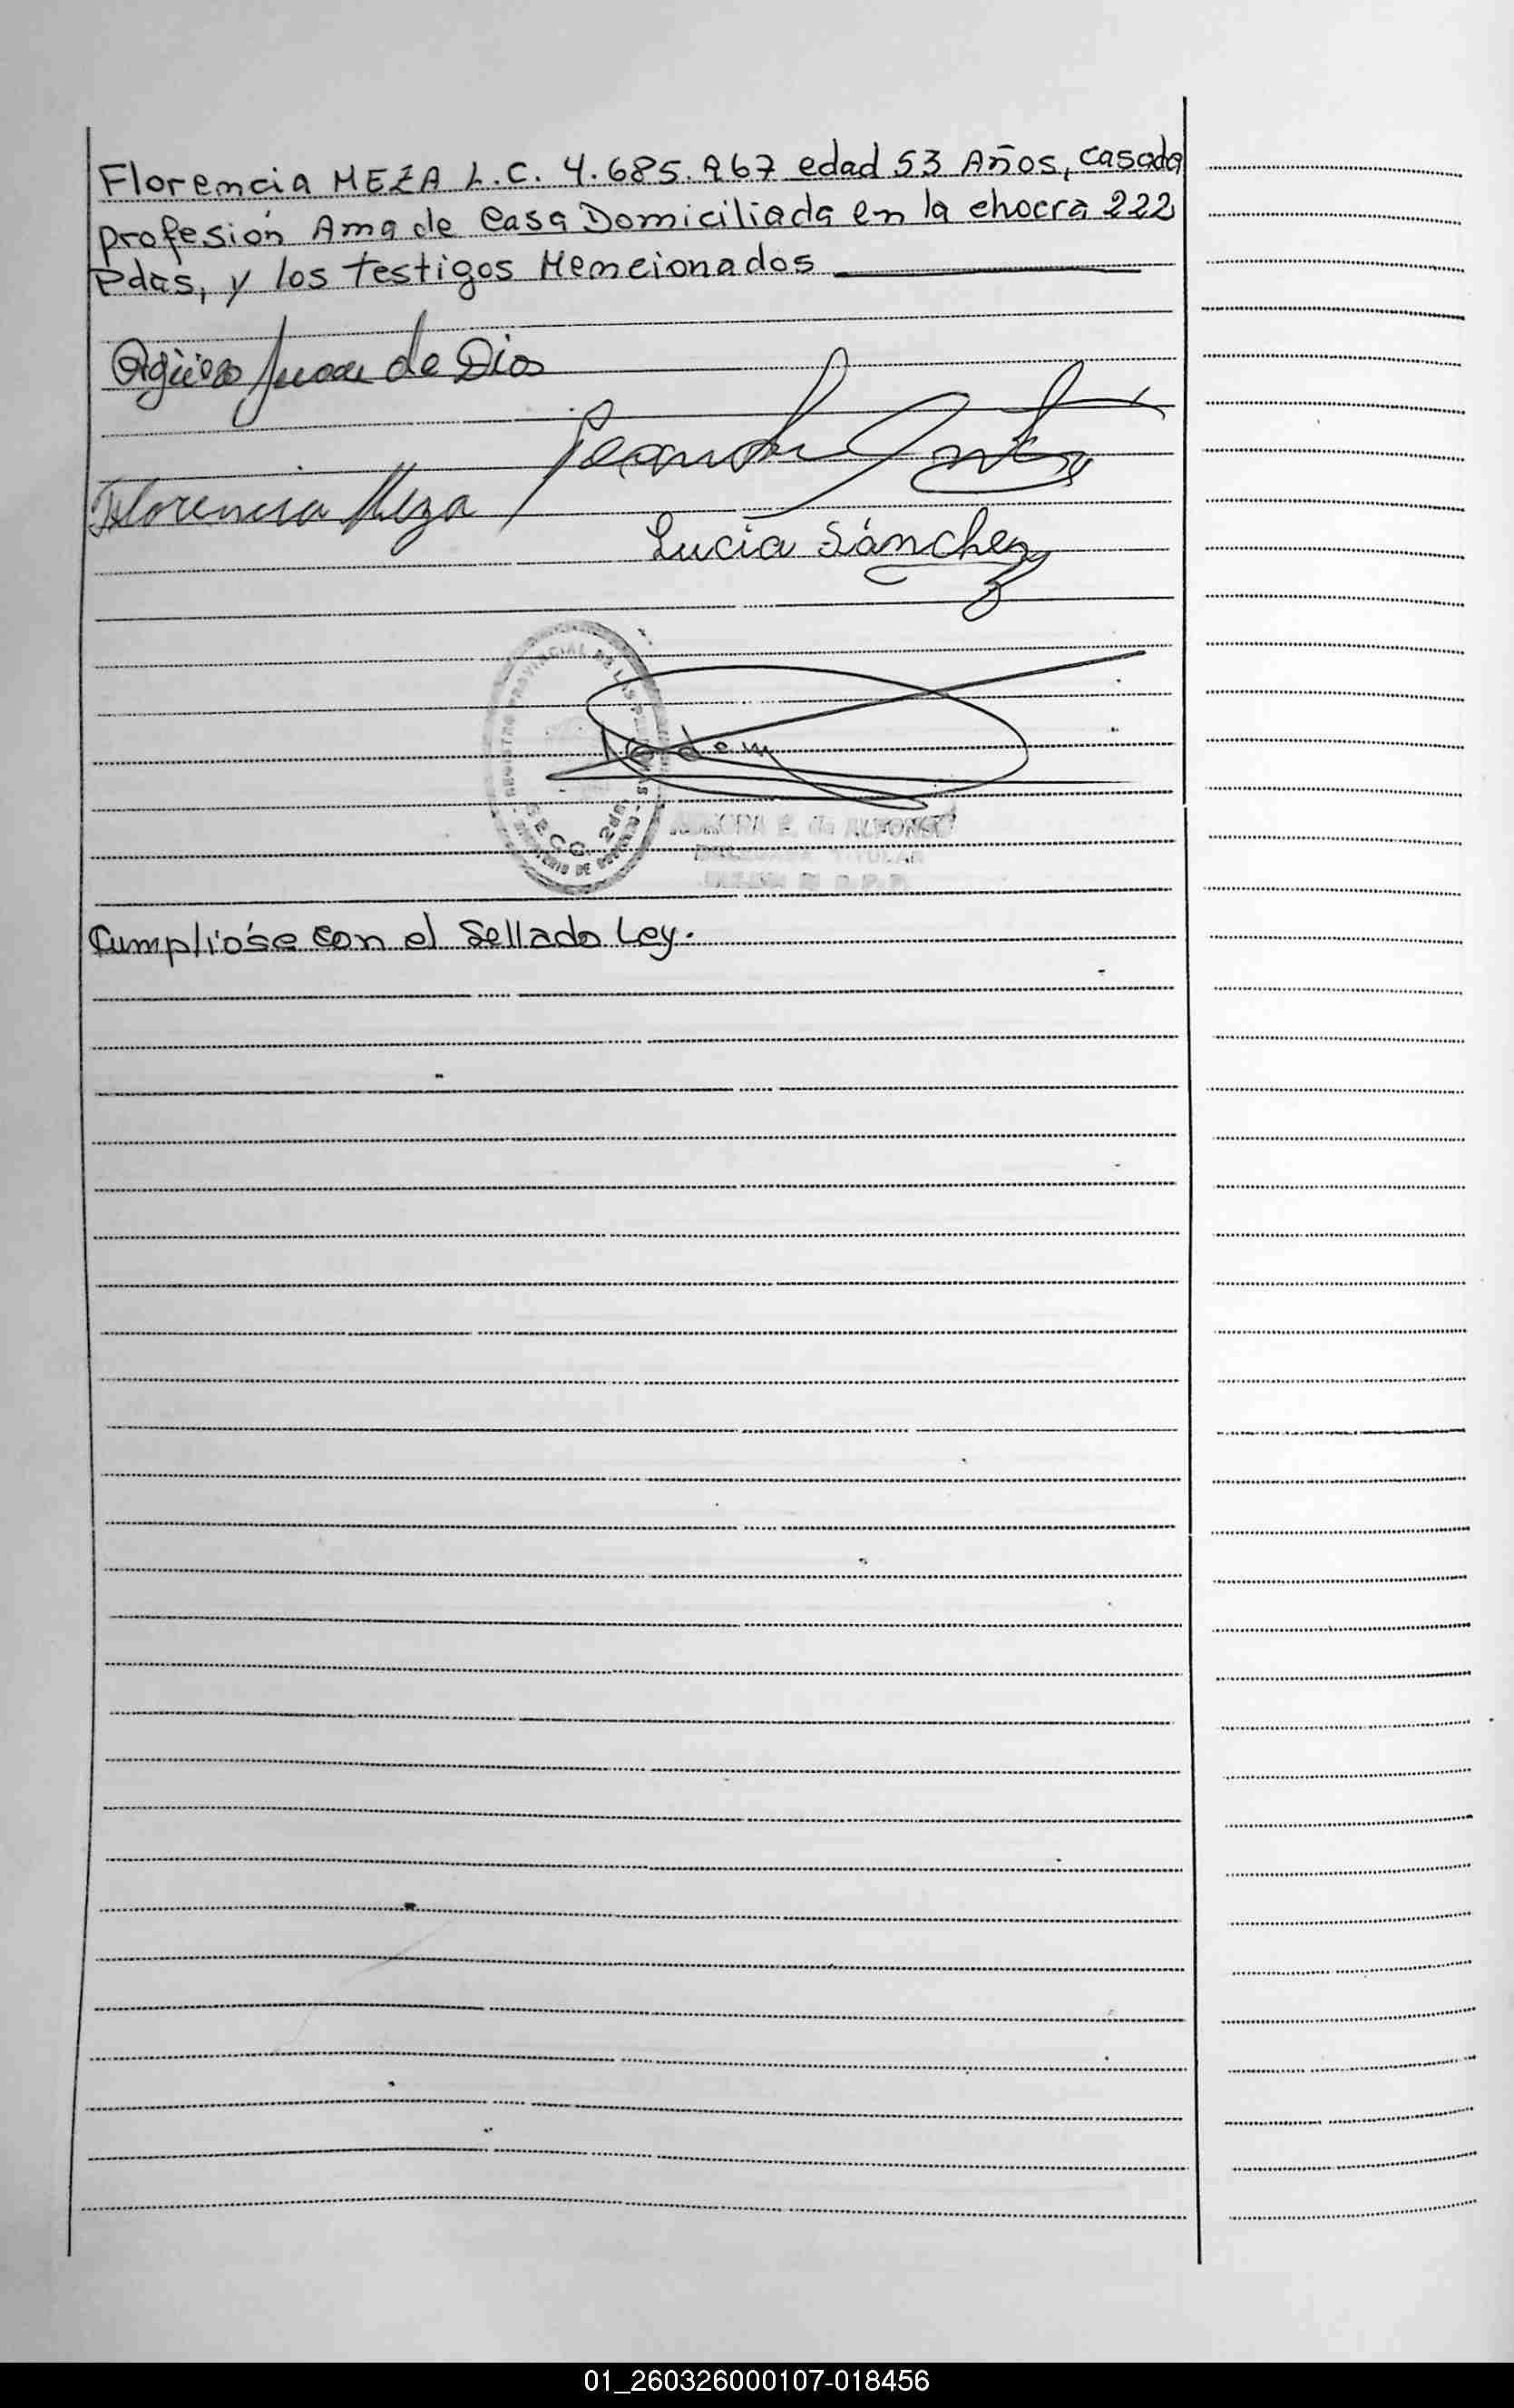 Florencia MEZA L.C. 4.685.967 edad 53 Años, casada
profesión Ama de Casa Domiciliada en la chocra 222
Pdas, y los testigos Mencionados
Agüero Juan de Dios
Florencia Meza
Lucia Sánchez
REGISTRO PROVINCIAL DE LAS PERSONAS
SECC. 2da.
MINISTERIO DE GOBIERNO
ALFONSO
DELEGADA TITULAR
R.P.P.
Cumplióse con el Sellado Ley.
01_260326000107-018456